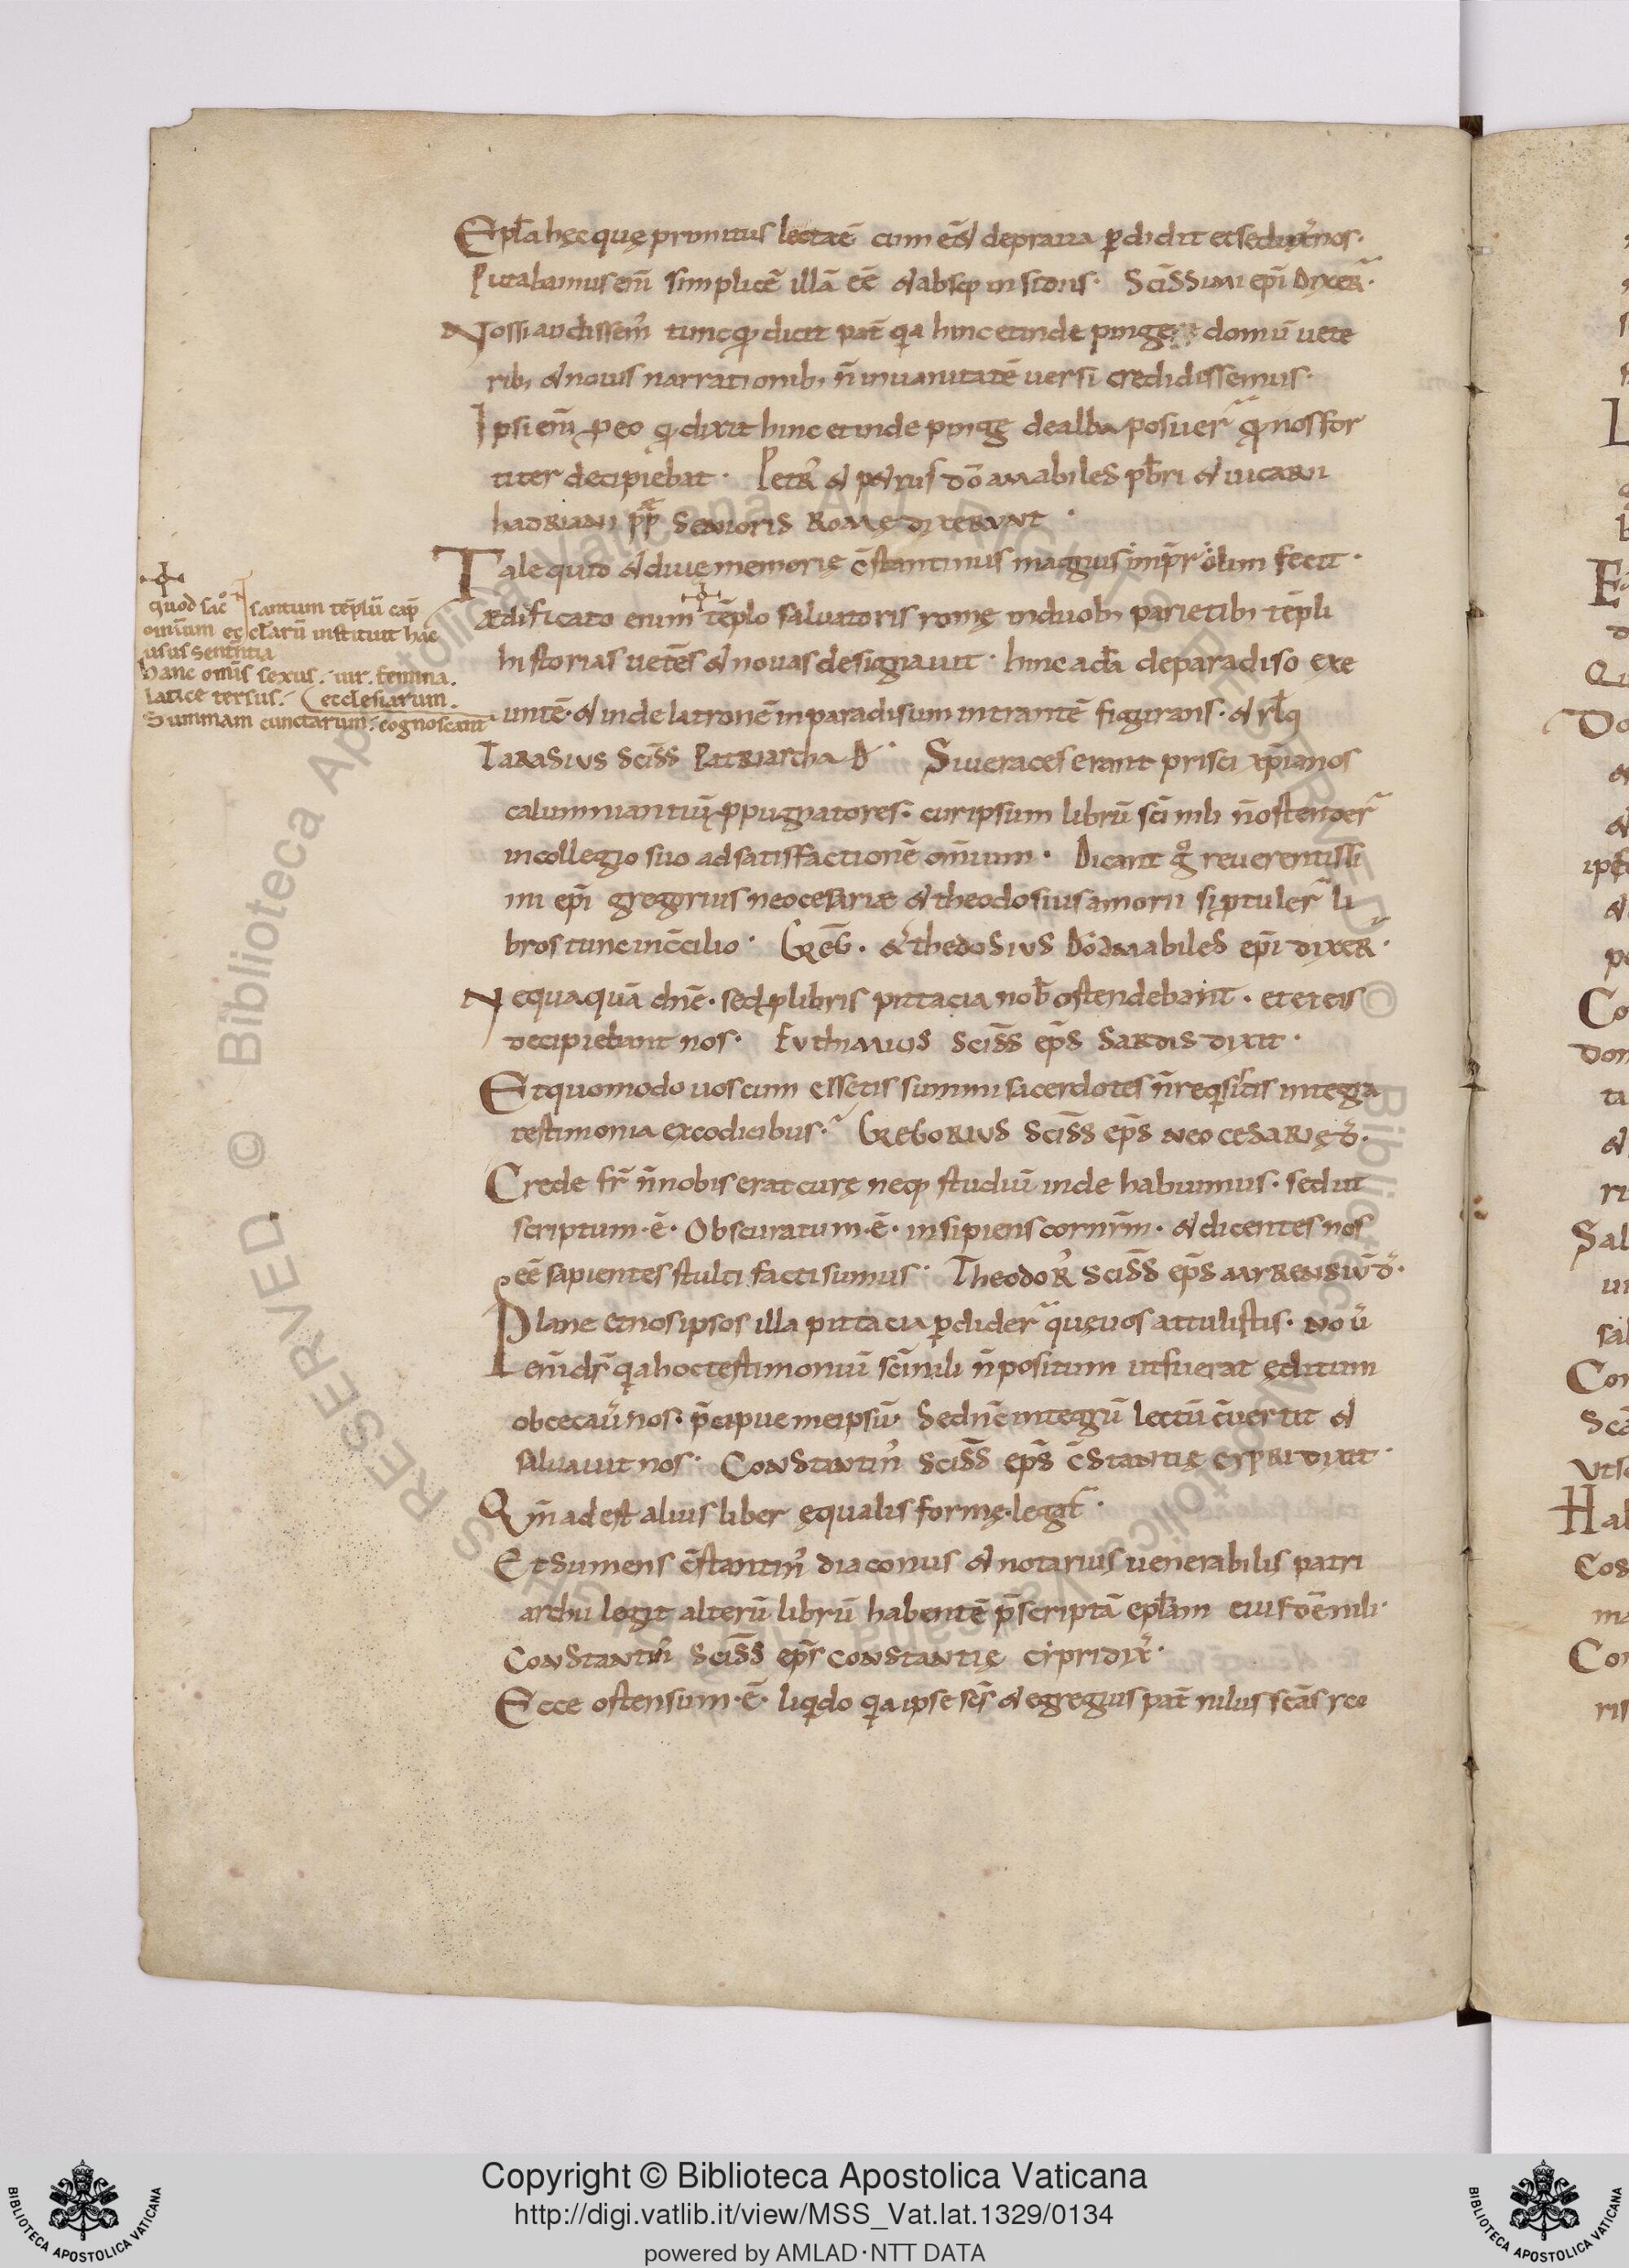 Epl̄a hęc quę pronitus lecta ē cum eēt deprauata ꝑdidit et seduxͬ nos.
Putabamus eni̅ simplicē illā eē & absq; in storiis. Sci̅ssimi epi̅ dixer̄.
Nos si audissem̓ tunc quod dicit pat̄ qa hinc et inde pingere domū uete
rib; & nouis narrationib; n̄ in uanitatē uersi credidissemus.
Ipsi eni̅ ꝓ eo qd dixit hinc et inde pinge dealba posuer̄ qd nos for
titer decipiebat. Petr̓ & petrus dō amabiles pb̄ri & uicarii
hadriani pp̄ę senioris romę dixerunt.
Tale quid & diuę memorię c̄stantinus magnus imp̄r olim fecit.
Ædificato enim tēplo saluatoris romę in duob; parietib; tēpli
historias uetēs & nouas designauit. hinc adā de paradiso exe
untē. & inde latronē in paradisum intrantē figurans. & rl̄q
Tarasius sci̅ss patriarcha D. Si ueraces erant prisci xp̄ianos
calumniantiū ꝓpugnatores. cur ipsum librū sci̅ nili n̄ ostender̄
in collegio suo ad satisfactionē omi̅um. Dicant gͦ reuerentissi
mi epi̅ gregorius neocesariæ & theodosius amorii si ꝓtuler̄ li
bros tunc in c̄cilio. Greḡ. & thedosius dō amabiles epi̅ dixer̄.
Nequaquā dn̄e. sed ꝓ libris pittacia nob̄ ostendebant. et ex eis
decipiebant nos. Euthimius sci̅ss ep̄s sardis dixit.
Et quomodo uos cum essetis summi sacerdotes n̄ reqsistis integra
testimonia ex codicibus. Gregorius sci̅ss ep̄s neocesarię d̄.
Crede fr̄ n̄ nobis erat curę neq; studiū inde habuimus. sed ut
scriptum .ē. Obscuratum .ē. insipiens cor nr̄m. & dicentes nos
eē sapientes stulti facti sumus. Theodor̓ sci̅ss ep̄s mirensiū d̄.
Plane et nos ipsos illa pittacia ꝑdider̄ quę uos attulistis. nou̅
eni̅ ds̄ qa hoc testimoniū sci̅ nili n̄ positum ut fuerat editum
obcecau̅ nos. p̄cipue me ipsū. Sed nc̄ integrū lectū c̄uertit &
saluauit nos. Constantin̓ sci̅ss ep̄s c̄stantię cypri dixit.
Qm̄ adest alius liber ęqualis formę. legat̄.
Et sumens c̄stantin̓ diaconus & notarius uenerabilis patri
archii legit alterū librū habentē p̄scriptā epl̄am eiusdē nili.
Constantin̓ sci̅ss ep̄s constantię cipri dix̄.
Ecce ostensum .ē. liqdo qa ipse scs̄ & egregius pat̄ nilus scās ree
quod sacͦ santum tēplū cap̄
omi̅um ecclarū instituit hac
usus sententia
hanc omi̅s sexus. uir. femina.
latice tersus. ecclesiarum.
Summam cunctarum. cognoscant
Copyright © Biblioteca Apostolica Vaticana
http://digi.vatlib.it/view/MSS_Vat.lat.1329/0134
powered by AMLAD·NTT DATA